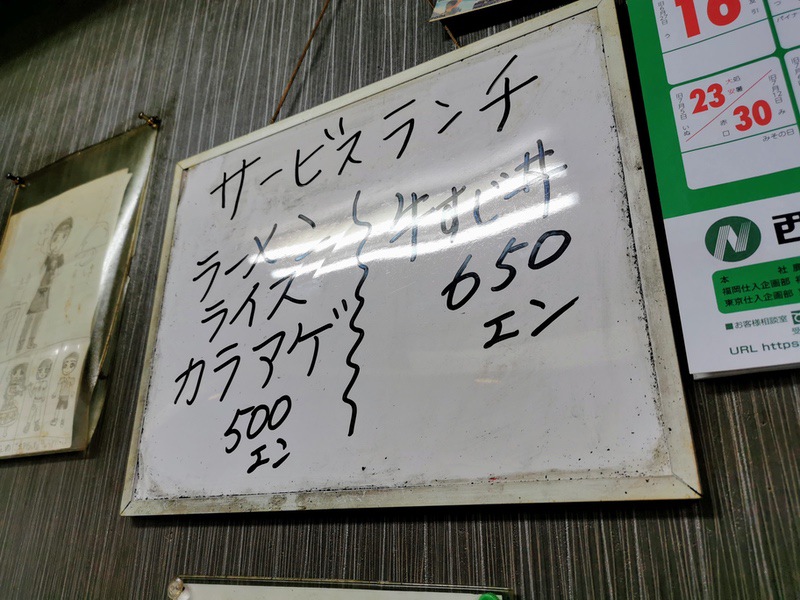 サービスランチ
ラーメン
ライス
カラアゲ
500
エン
牛すじ丼
650
エン
16
23
30
大安
みその日
N 西
本社
福岡仕入企画部
東京仕入企画部
■お客様相談室
URL https: